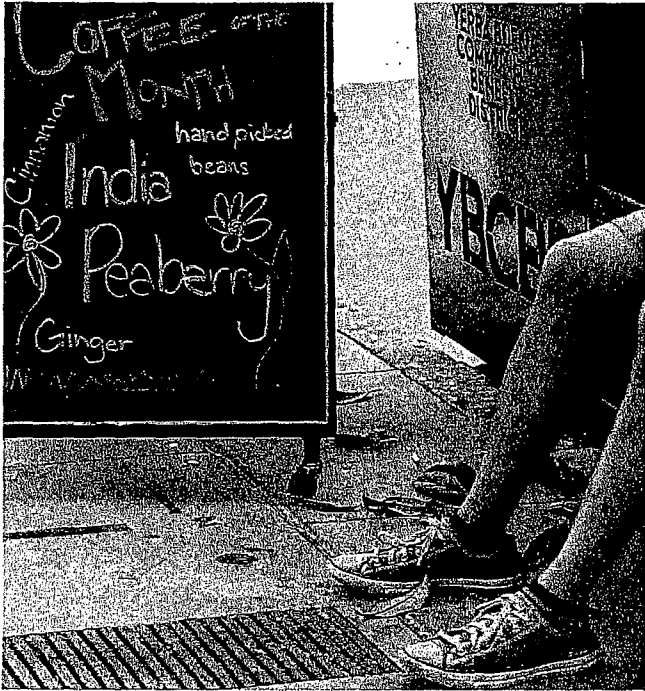 COFFEE OF THE
MONTH
Cinnamon
hand picked
beans
India
Peaberry
Ginger
YERBA BUENA
COMMUNITY
BENEFIT
DISTRICT